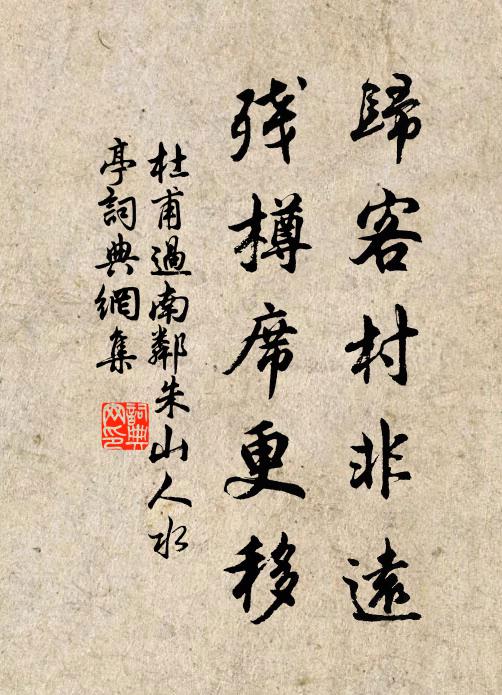 歸客村非遠
残樽席更移
杜甫過南鄰朱山人水
亭詞典網集
詞典
网印